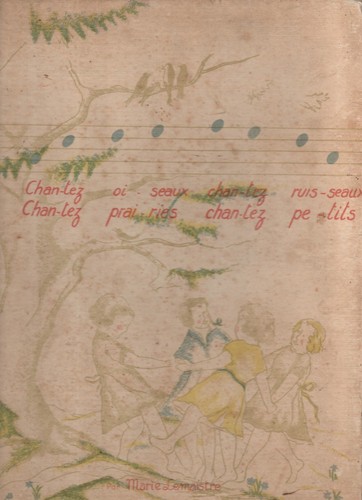 Chan-tez oi-seaux chan-tez ruis-seaux
Chan-tez prai-ries chan-tez pe-tits
Marie Lemaistre